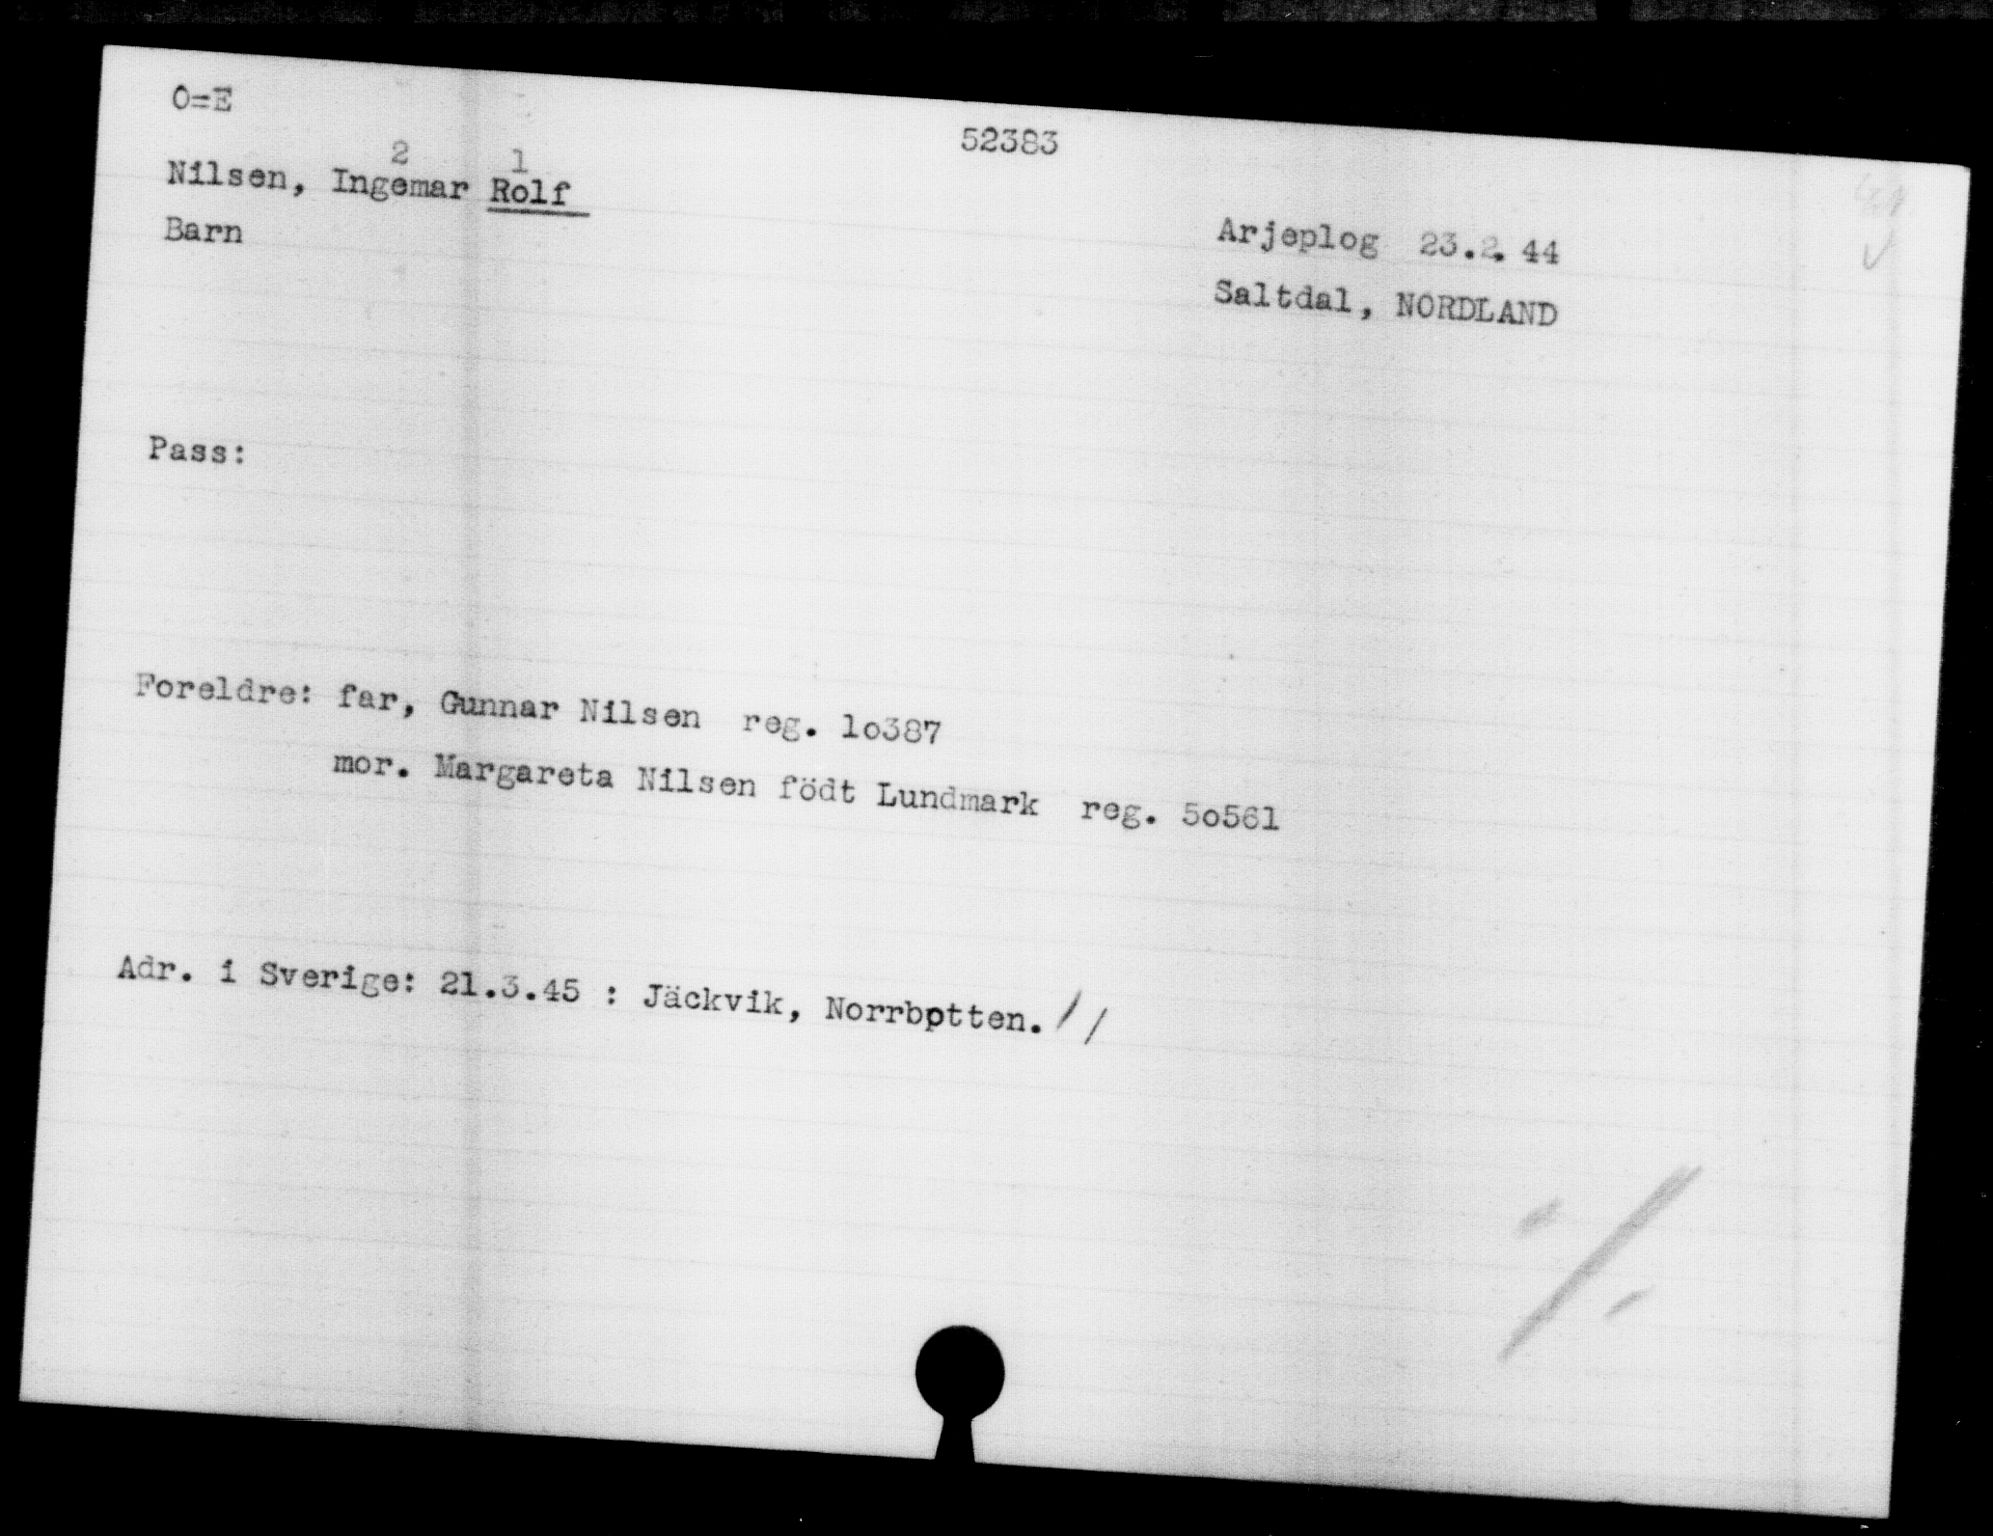 O=E
52383
2 1
Nilsen, Ingemar Rolf
Barn
Arjeplog 23.2.44
Saltdal, NORDLAND
Pass:
Foreldre: far, Gunnar Nilsen reg. 1o387
mor. Margareta Nilsen födt Lundmark reg. 5o561
Adr. i Sverige: 21.3.45 : Jäckvik, Norrbptten. //